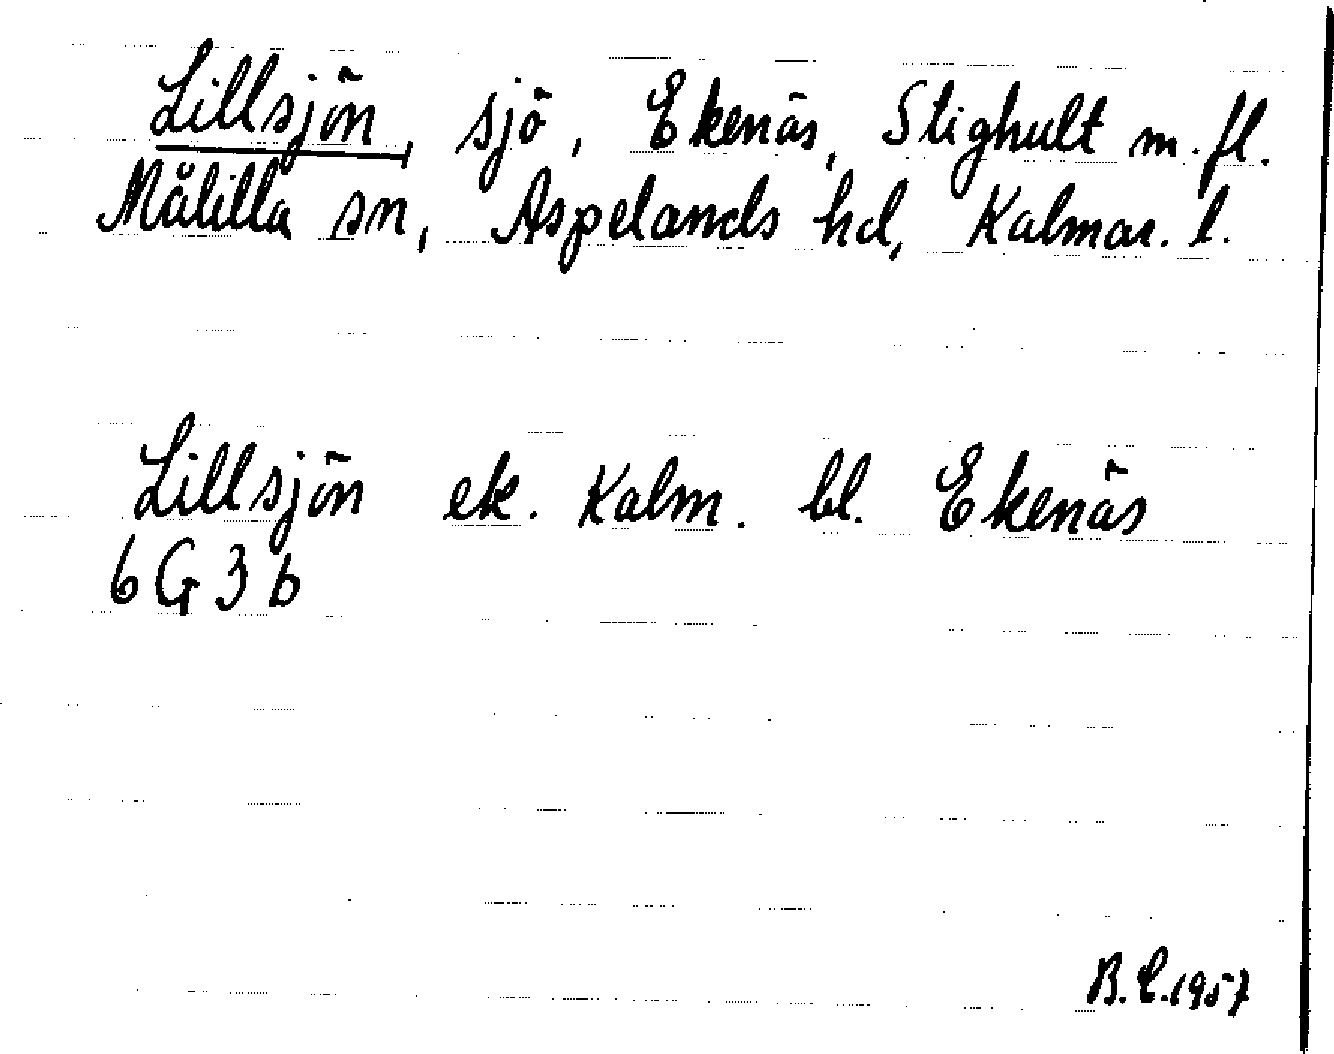 Lillsjön, sjö, Ekenäs, Stighult m.fl.
Målilla sn, Aspelands hd, Kalmar. l.
Lillsjön ek. Kalm. bl. Ekenäs
6G3b
B.E.1957